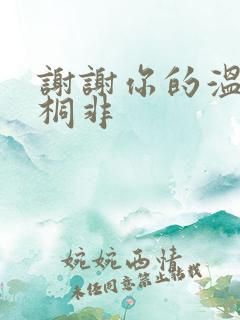 謝謝你的溫
桐非
婉婉西情
未任同意禁止转载